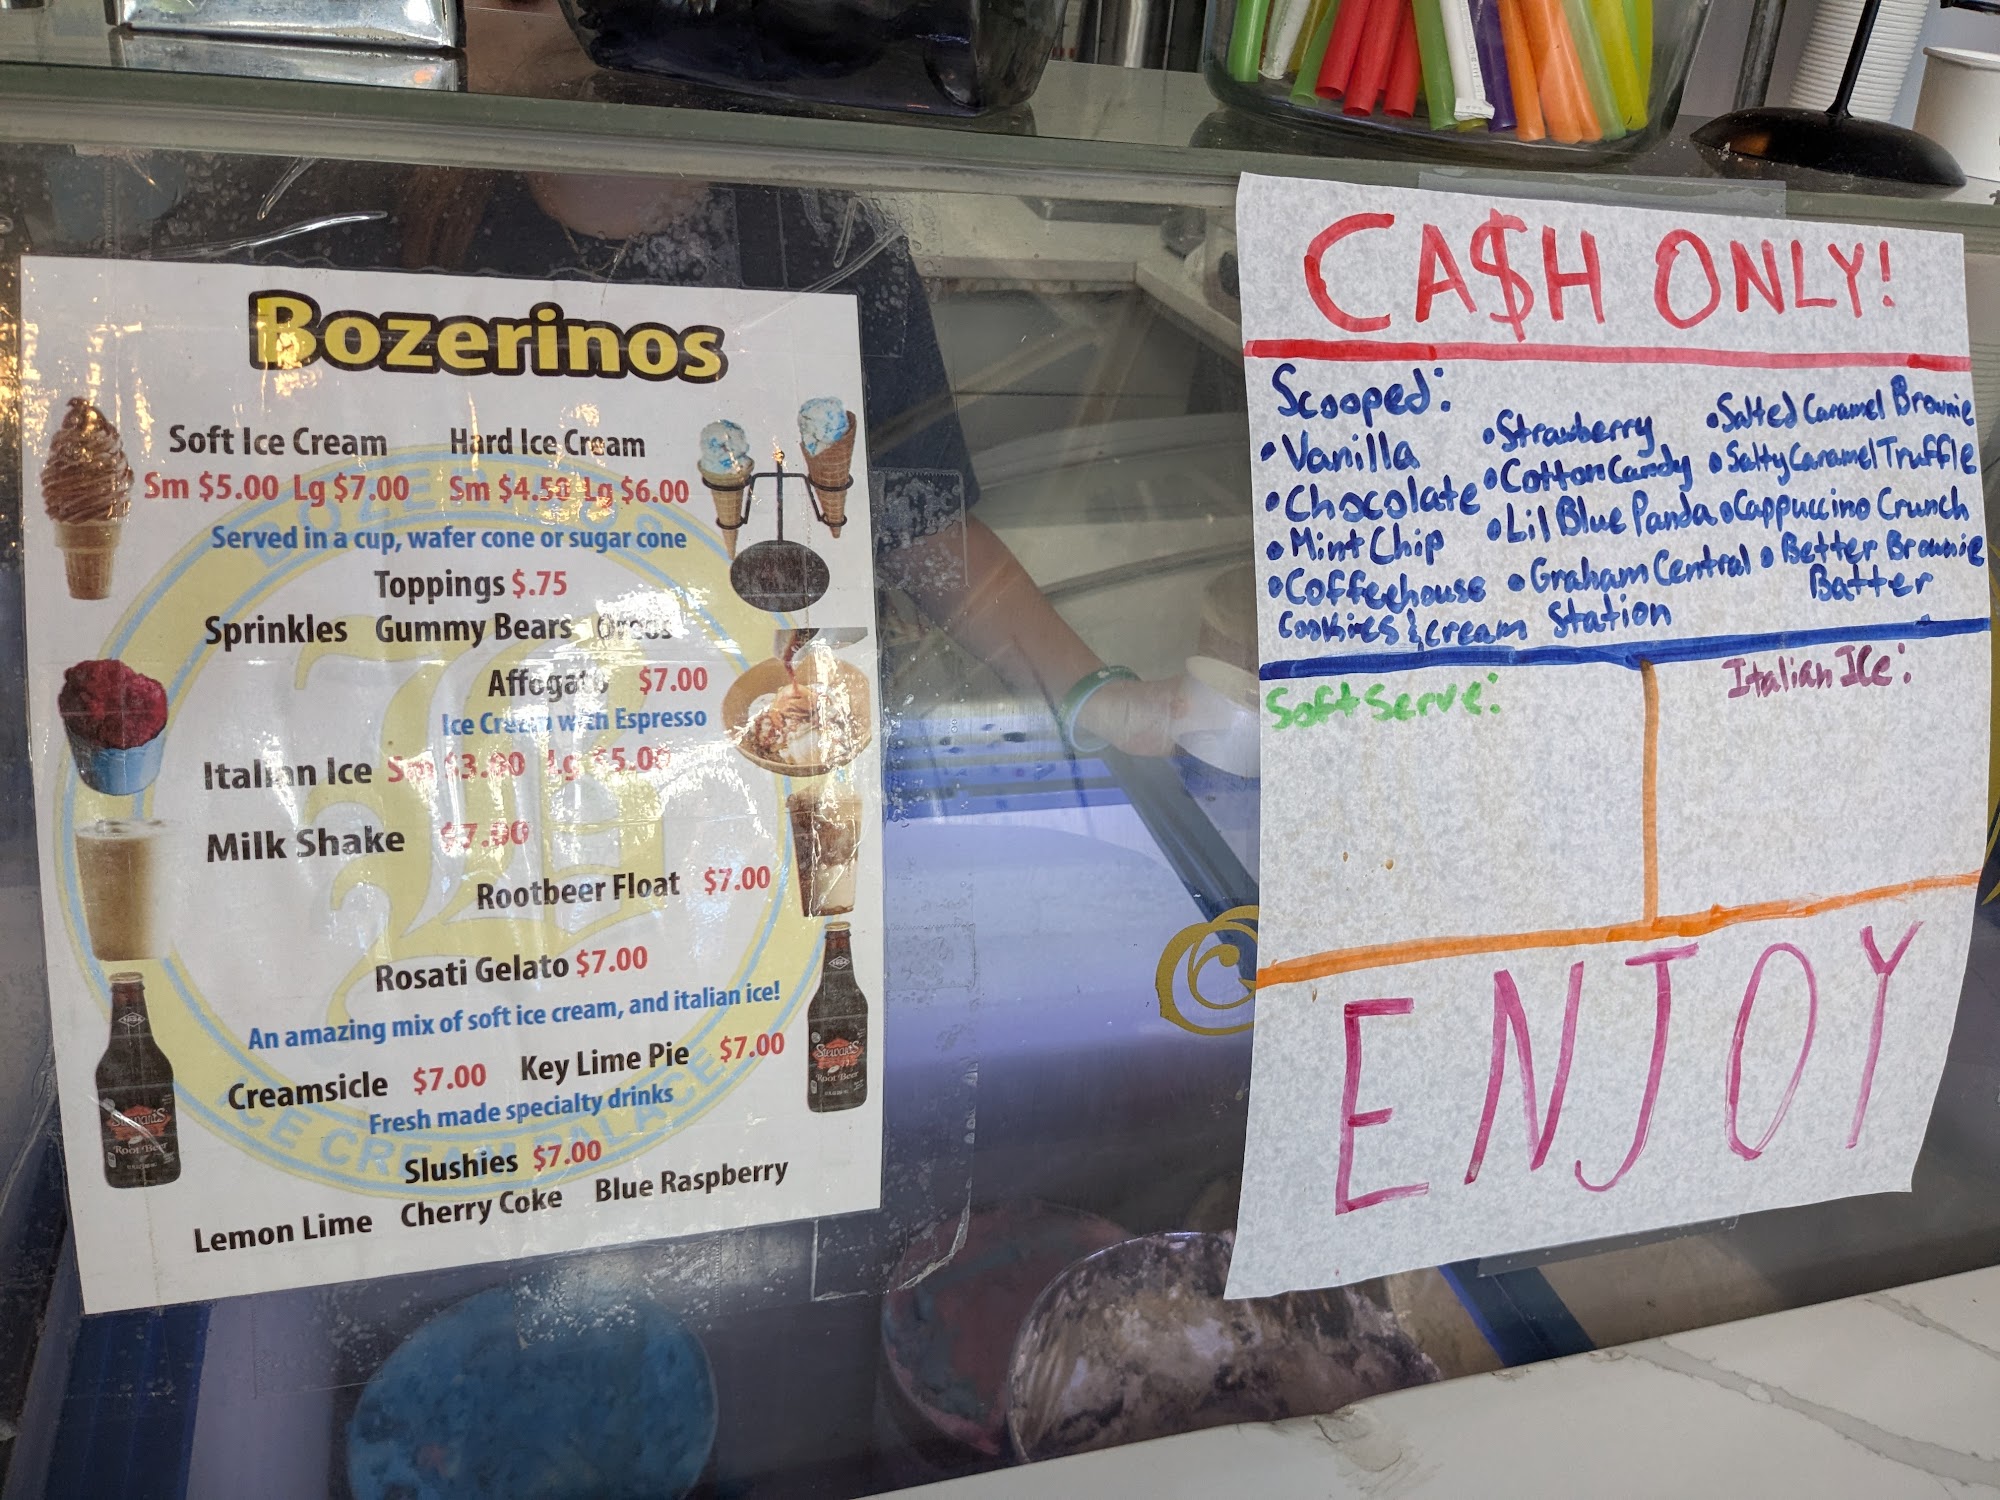 Bozerinos
Soft Ice Cream Hard Ice Cream
Sm $5.00 Lg $7.00 Sm $4.50 Lg $6.00
Served in a cup, wafer cone or sugar cone
Toppings $.75
Sprinkles Gummy Bears Oreos
Affogato $7.00
Ice Cream with Espresso
Italian Ice Sm $3.00 Lg $5.00
Milk Shake $7.00
Rootbeer Float $7.00
Rosati Gelato $7.00
An amazing mix of soft ice cream, and italian ice!
Creamsicle $7.00 Key Lime Pie $7.00
Fresh made specialty drinks
Slushies $7.00
Lemon Lime Cherry Coke Blue Raspberry
BOZERINOS
ICE CREAM PALACE
B
Stewart's
Root Beer
Stewart's
Root Beer
CA$H ONLY!
Scooped:
• Vanilla
• Chocolate
• Mint Chip
• Coffeehouse
Cookies & Cream
• Strawberry
• Cotton Candy
• Lil Blue Panda
• Graham Central
Station
• Salted Caramel Brownie
• Salty Caramel Truffle
• Cappuccino Crunch
• Better Brownie
Batter
Soft Serve:
Italian Ice:
ENJOY